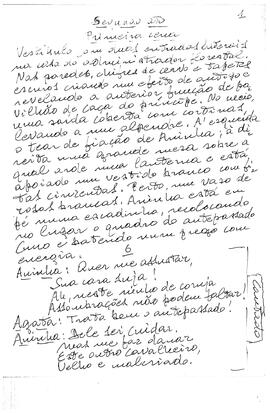 1
Segundo ato
Primeira cena
Vestíbulo com duas entradas laterais
na casa do administrador florestal.
Nas paredes, chifres de cervo e tapetes
escuros criando um efeito de antigo e
revelando a anterior função de pa-
vilhão de caça do príncipe. No meio,
uma saída coberta com cortinas,
levando a um alpendre. À esquerda
o tear de fiação de Aninha; à di-
reita uma grande mesa sobre a
qual arde uma lanterna e está
apoiado um vestido branco com fi-
tas cinzentas. Perto, um vaso de
rosas brancas. Aninha está em
pé numa escadinha, recolocando
no lugar o quadro do antepassado
Cuno e batendo num prego com
energia.
6
Aninha: Quer me assustar,
Sua cara suja!
Ah, neste ninho de coruja
Assombrações não podem faltar!
Agata: Trata bem o antepassado!
Aninha: Dele sei cuidar.
Mas me faz danar
Este outro cavalheiro,
Velho e malcriado.
Cantado